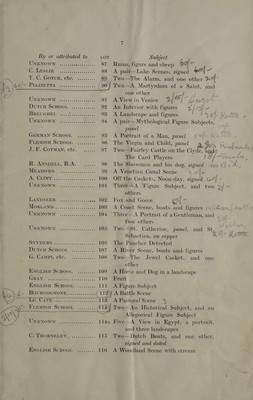 7
By or attributed to LOT Subject
UNKNOWN 87 Ruins, figure and sheep
C. LESLIE 88 A pair—Lake Scenes, signed
T. C. GOTCH, etc. 89 Two—The Alarm, and one other
PIAZZETTA 90 Two—A Martyrdom of a Saint, and
one other
UNKNOWN 91 A View in Venice
DUTCH SCHOOL 92 An Interior with figures
BREUGHEL 93 A Landscape and figures
UNKNOWN 94 A pair—Mythological Figure Subjects,
panel
GERMAN SCHOOL 95 A Portrait of a Man, panel
FLEMISH SCHOOL 96 The Virgin and Child, panel
J. F. COWAN, etc. 97 Two—Fairley Castle on the Clyde and
The Card Players
R. ANSDELL, R.A. 98 The Sportsman and his dog, signed
MEADOWS 99 A Venetian Canal Scene
A. CLINT 100 Off the Caskets, Noon-day, signed
UNKNOWN 101 Three—A Figure Subject, and two
others
LANDSEER 102 Fox and Goose
MORLAND 103 A Coast Scene, boats and figures
UNKNOWN 104 Three—A Portrait of a Gentleman, and
two others
UNKNOWN 105 Two—St. Catherine, panel, and St.
Sebastian, on copper
SNYDERS 106 The Poacher Detected
DUTCH SCHOOL 107 A River Scene, boats and figures
G. CAMPI, etc. 108 Two—The Jewel Casket, and one
other
ENGLISH SCHOOL 109 A Horse and Dog in a landscape
GRAY 110 Fruit
ENGLISH SCHOOL 111 A Figure Subject
BOURGOGNONE 112 A Battle Scene
LE CAVE 113 A Pastoral Scene
FLEMISH SCHOOL 114 Two—An Historical Subject, and an
Allegorical Figure Subject
UNKNOWN 114A Five—A View in Egypt, a portrait,
and three landscapes
C. THORNELEY 115 Two—Dutch Boats, and one other,
signed and dated
ENGLISH SCHOOL 116 A Woodland Scene with stream